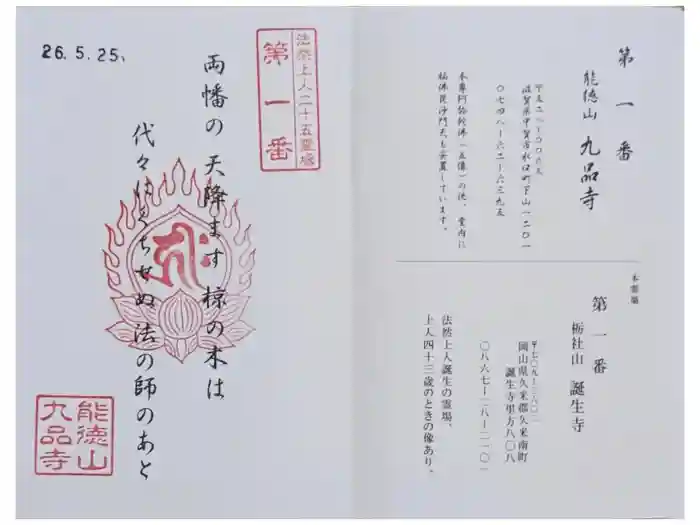 第一番
能徳山 九品寺
〒五二八ー〇〇六五
滋賀県甲賀市水口町下山一二〇一
〇七四八ー六二ー六三九五
本尊阿弥陀佛（五像）の他、堂内に
福佛毘沙門天も安置しています。
本霊場
第一番
栃社山 誕生寺
〒七〇九ー三六〇二
岡山県久米郡久米南町
誕生寺里方八〇八
〇八六七ー二八ー二一〇二
法然上人誕生の霊場、
上人四十三歳のときの像あり。
法然上人二十五霊場
第一番
両幡の 天降ます 椋の木は
代々にくちせぬ 法の師のあと
26.5.25、
能徳山
九品寺